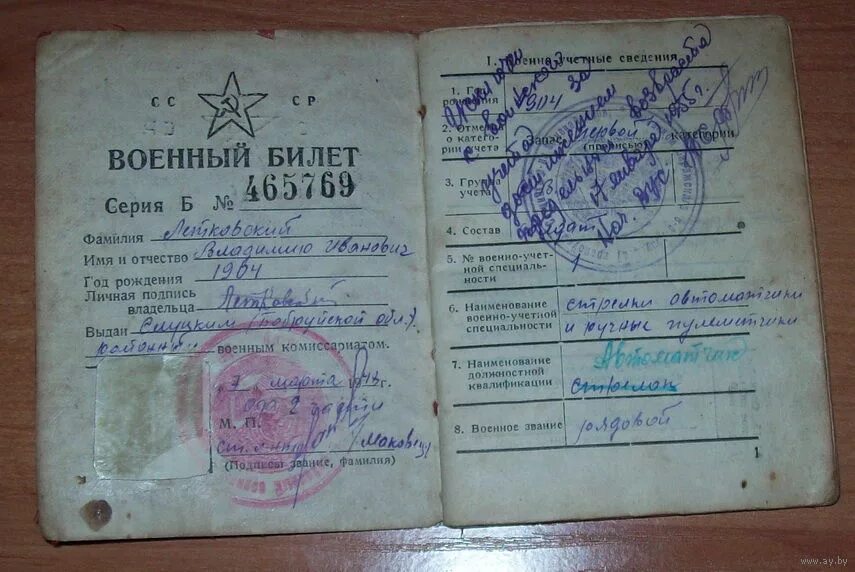 СС СР
ВОЕННЫЙ БИЛЕТ
Серия Б № 465769
Фамилия Летковский
Имя и отчество Владимир Иванович
Год рождения 1904
Личная подпись
владельца Летковский
Выдан Слуцким (Бобруйской обл.)
районным военным комиссариатом.
"7" марта г.
М. П.
(Подпись, звание, фамилия)
I. Военно-учетные сведения
1. Год
рождения 1904
2. Отметка
о категории учета
Запас первой категории
(прописью)
3. Группа
учета
4. Состав
5. № военно-учетной специальности
1
6. Наименование
военно-учетной
специальности
стрелки автоматчики
и ручных пулеметчики
7. Наименование
должностной
квалификации
Автоматчик
стрелок
8. Военное звание
рядовой
1
с воинского
учета за
достижением
предельного возраста
7 января 1955г.
Нач.
www.ay.by